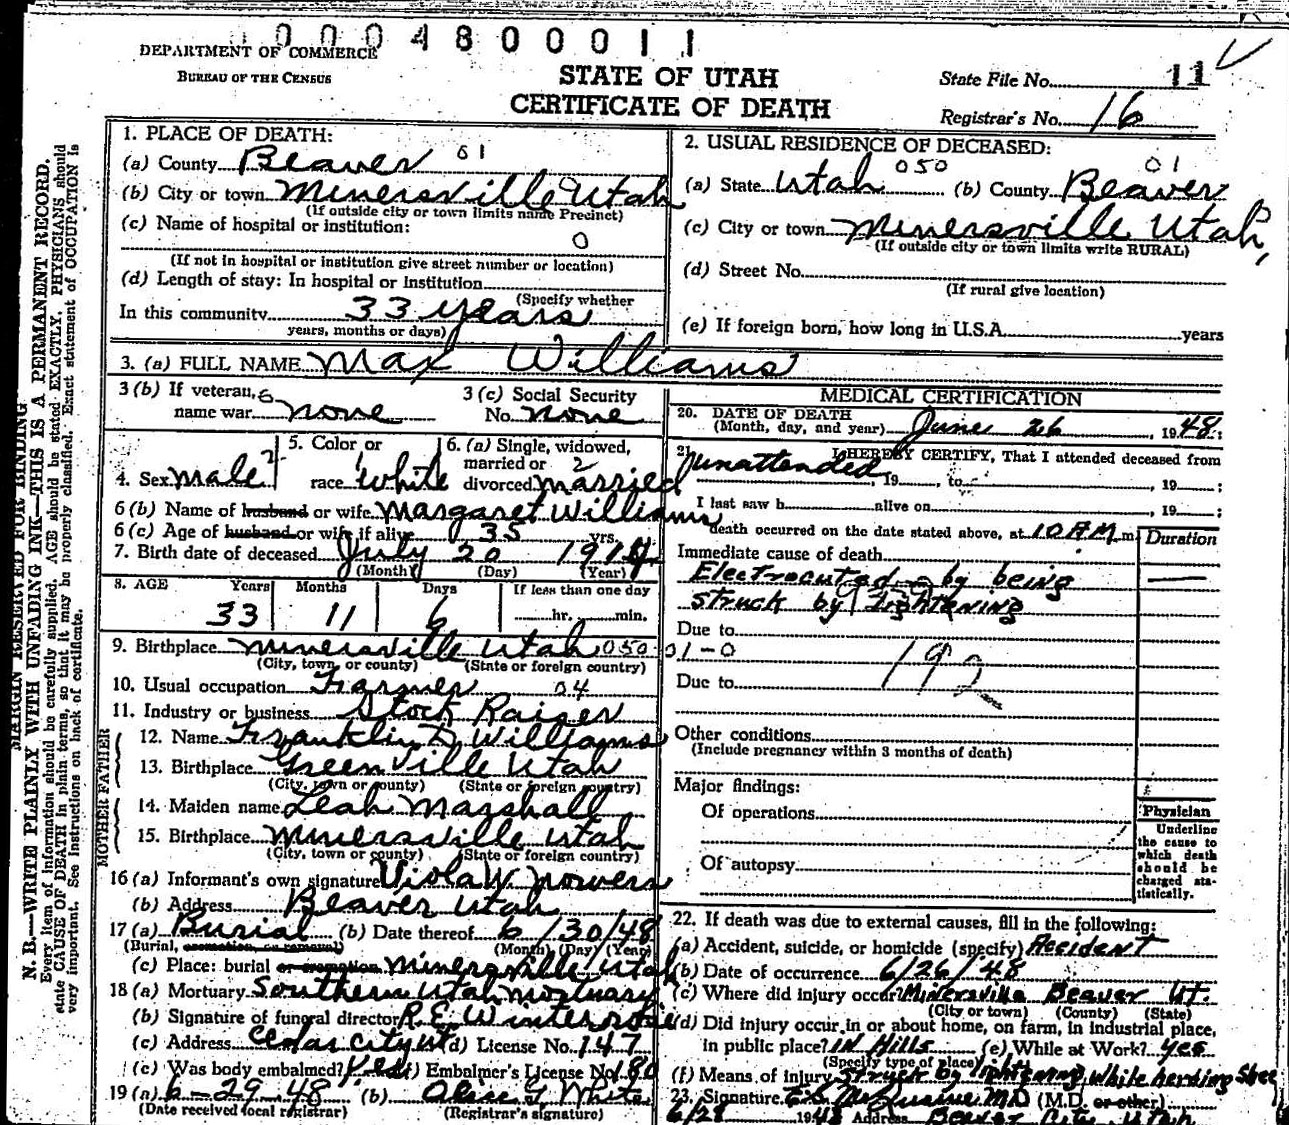 0004800011
DEPARTMENT OF COMMERCE
BUREAU OF THE CENSUS
STATE OF UTAH
CERTIFICATE OF DEATH
State File No. 11
Registrar's No. 16
MARGIN RESERVED FOR BINDING
N. B.—WRITE PLAINLY WITH UNFADING INK—THIS IS A PERMANENT RECORD.
Every item of information should be carefully supplied. AGE should be stated EXACTLY. PHYSICIANS should
state CAUSE OF DEATH in plain terms, so that it may be properly classified. Exact statement of OCCUPATION is
very important. See instructions on back of certificate.
1. PLACE OF DEATH:
(a) County Beaver 01
(b) City or town Minersville Utah
(If outside city or town limits name Precinct)
(c) Name of hospital or institution:
0
(If not in hospital or institution give street number or location)
(d) Length of stay: In hospital or institution
(Specify whether
In this community 33 years
years, months or days)
2. USUAL RESIDENCE OF DECEASED:
050 01
(a) State Utah (b) County Beaver
(c) City or town Minersville Utah,
(If outside city or town limits write RURAL)
(d) Street No.
(If rural give location)
(e) If foreign born, how long in U.S.A. years
3. (a) FULL NAME Max Williams
3 (b) If veteran,
name war none
3 (c) Social Security
No. none
4. Sex male 2
5. Color or
race white 1
6. (a) Single, widowed,
married or 2
divorced married
6 (b) Name of husband or wife Margaret Williams
6 (c) Age of husband or wife if alive 35 yrs.
7. Birth date of deceased July 20 1914
(Month) (Day) (Year)
8. AGE Years Months Days If less than one day
33 11 6 hr. min.
9. Birthplace Minersville Utah 050 01-0
(City, town, or county) (State or foreign country)
10. Usual occupation Farmer 04
11. Industry or business Stock Raiser
FATHER
12. Name Franklin D Williams
13. Birthplace Greenville Utah
(City, town or county) (State or foreign country)
MOTHER
14. Maiden name Leah Marshall
15. Birthplace Minersville Utah
(City, town or county) (State or foreign country)
16 (a) Informant's own signature Viola W. Nowers
(b) Address Beaver Utah
17 (a) Burial (b) Date thereof 6/30/48
(Burial, cremation, or removal) (Month) (Day) (Year)
(c) Place: burial or cremation Minersville Utah
18 (a) Mortuary Southern Utah Mortuary
(b) Signature of funeral director R.E. Winterrose
(c) Address Cedar City Ut (d) License No. 147
(e) Was body embalmed? Yes (f) Embalmer's License No. 180
19 (a) 6-29-48 (b) Alice G White
(Date received local registrar) (Registrar's signature)
MEDICAL CERTIFICATION
20. DATE OF DEATH
(Month, day, and year) June 26, 1948;
21. I HEREBY CERTIFY, That I attended deceased from
unattended, 19 , to , 19 ;
I last saw h alive on , 19 ;
death occurred on the date stated above, at 10 AM m.
Duration
Immediate cause of death
Electrocuted - by being
struck by lightening
Due to
192
Due to
Other conditions
(Include pregnancy within 3 months of death)
Major findings:
Of operations
Of autopsy
Physician
Underline
the cause to
which death
should be
charged sta-
tistically.
22. If death was due to external causes, fill in the following:
(a) Accident, suicide, or homicide (specify) Accident
(b) Date of occurrence 6/26/48
(c) Where did injury occur? Minersville Beaver Ut.
(City or town) (County) (State)
(d) Did injury occur in or about home, on farm, in industrial place,
in public place? in Hills (e) While at Work? yes
(Specify type of place)
(f) Means of injury Struck by lightening while herding Sheep
23. Signature MD (M.D. or other)
6/28 1948 Address Beaver City Utah